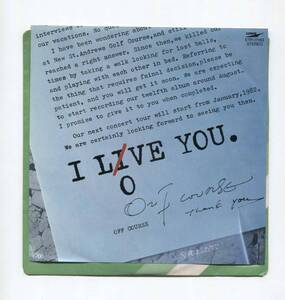 our vacations. No quest
I have been wondering about
at New St. Andrews Golf Course, and
reached a right answer. Since then, we killed our
times by taking a walk looking for lost balls,
and playing with each other in bed. Referring to
the thing that requires fainal decision, please be
patient, and you will get it soon. We are expecting
to start recording our twelfth album around August.
I promise to give it to you when completed.
Our next concert tour will start from January, 1982.
We are certainly looking forward to seeing you then.
I LIVE YOU.
O
OFF COURSE
Thank you
OFF COURSE
STEREO